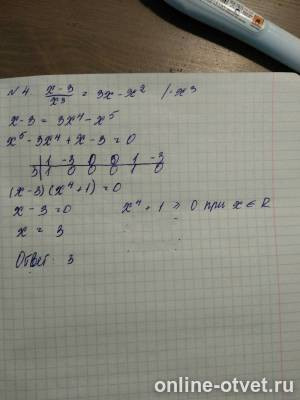 №4. x-3/x³ = 3x - x² /·x³
x-3 = 3x⁴ - x⁵
x⁵ - 3x⁴ + x - 3 = 0
1 -3 0 0 1 -3
3 1 0 0 0 1 0
(x-3)(x⁴+1) = 0
x - 3 = 0 x⁴ + 1 > 0 при x ∈ R
x = 3
Ответ: 3
online-otvet.ru